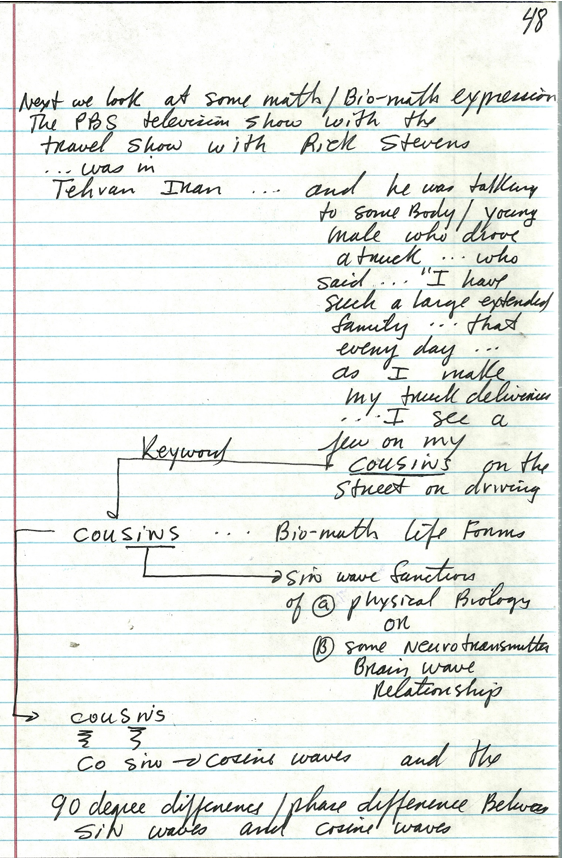 48
Next we look at some math/Bio-math expression
The PBS television show with the
travel show with Rick Stevens
... was in
Tehran Iran ... and he was talking
to some Body/young
male who drove
a truck ... who
said ... "I have
such a large extended
family ... that
every day ...
as I make
my truck deliveries
.... I see a
few on my
Keyword
cousins on the
street on driving
cousins ... Bio-math Life Forms
sin wave function
of (a) physical Biology
or
(B) some Neurotransmitter
Brain wave
Relationship
cousins
Co sin → cosine waves and the
90 degree difference/phase difference Between
sin waves and cosine waves